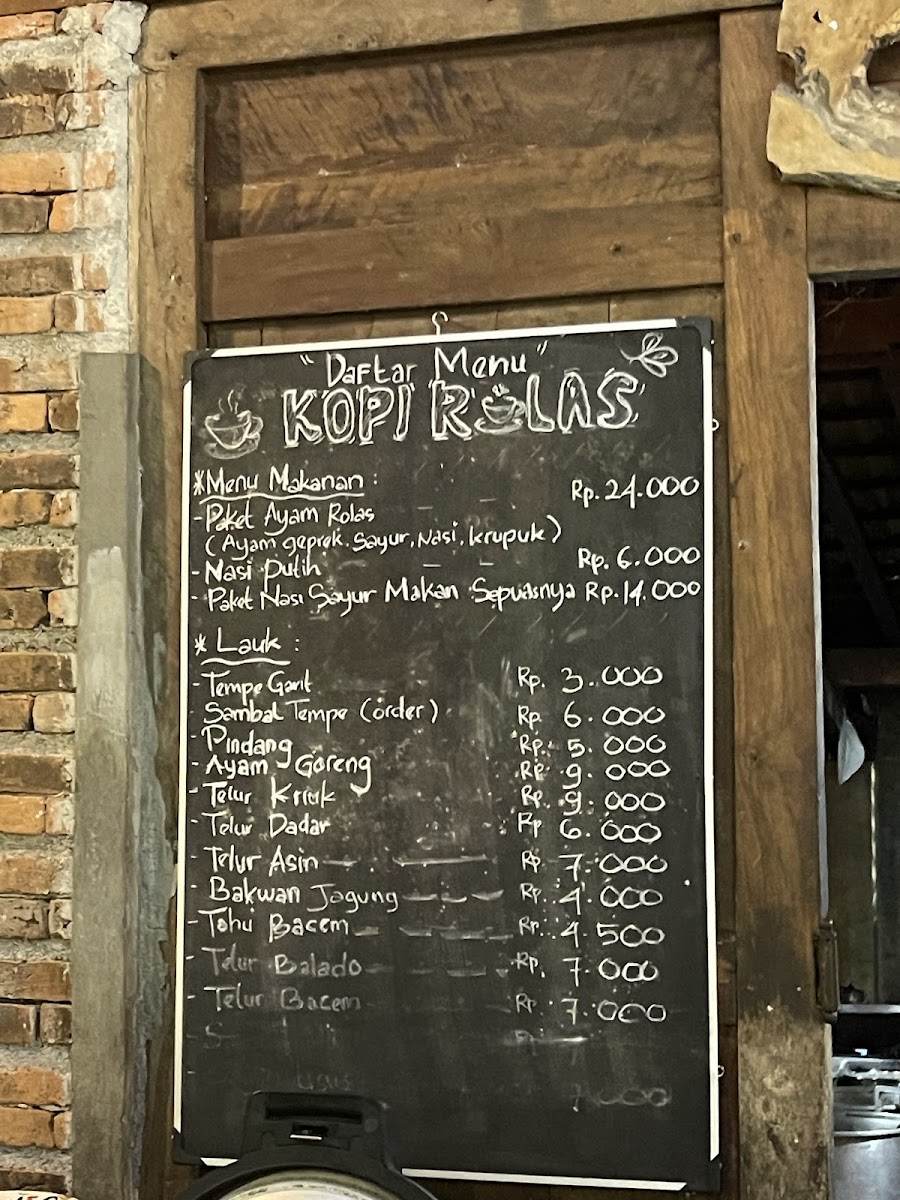 "Daftar Menu"
KOPI ROLAS
*Menu Makanan :
- Paket Ayam Rolas - - Rp. 24.000
(Ayam geprek. Sayur, Nasi, krupuk)
- Nasi Putih - - Rp. 6.000
- Paket Nasi Sayur Makan Sepuasnya Rp. 14.000
* Lauk :
- Tempe Garit Rp. 3.000
- Sambal Tempe (order) Rp. 6.000
- Pindang Rp. 5.000
- Ayam Goreng Rp. 9.000
- Telur Kriuk Rp. 9.000
- Telur Dadar Rp 6.000
- Telur Asin Rp. 7.000
- Bakwan Jagung Rp. 4.000
- Tahu Bacem Rp. 4.500
- Telur Balado Rp. 7.000
- Telur Bacem Rp. 7.000